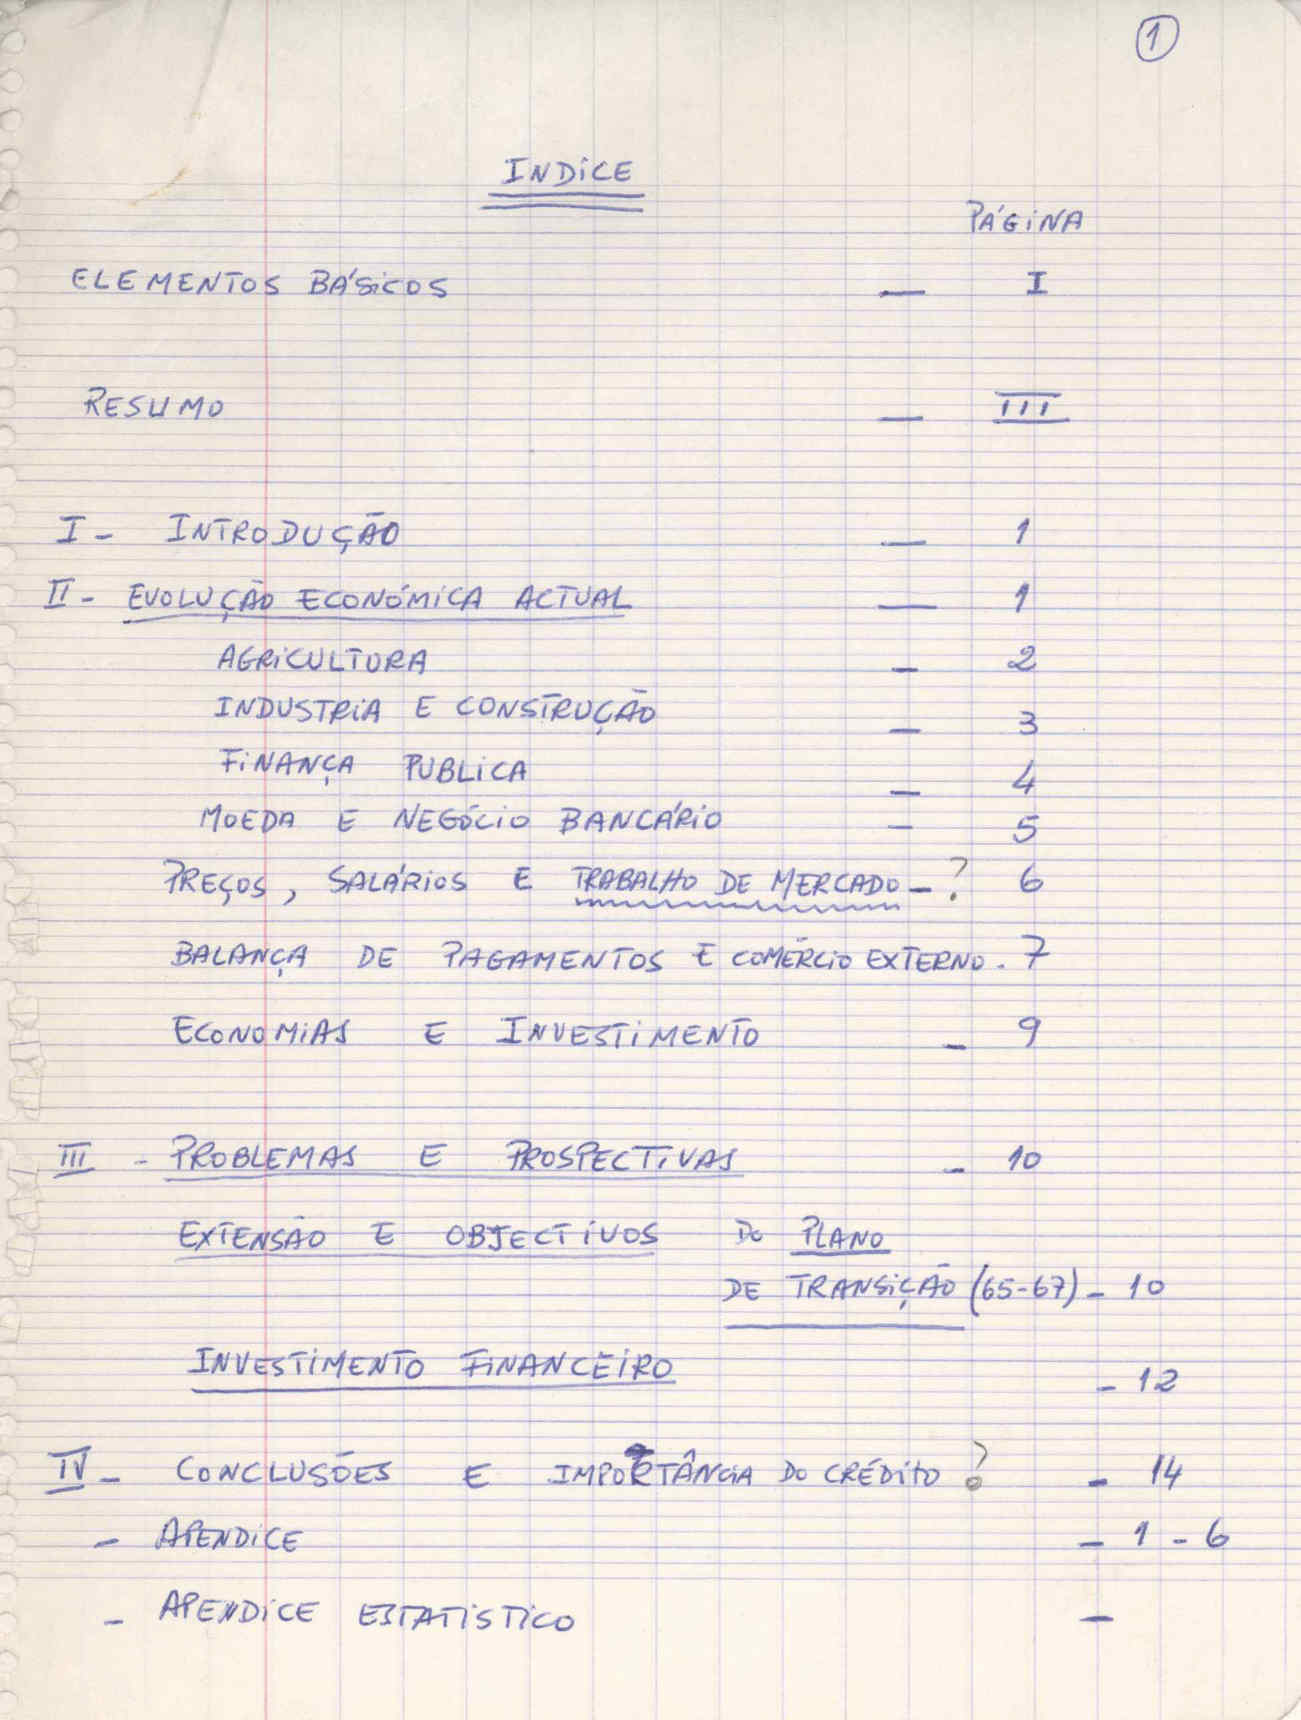 1
INDICE
PÁGINA
ELEMENTOS BÁSICOS — I
RESUMO — III
I - INTRODUÇÃO — 1
II - EVOLUÇÃO ECONÓMICA ACTUAL — 1
AGRICULTURA - 2
INDUSTRIA E CONSTRUÇÃO - 3
FINANÇA PUBLICA - 4
MOEDA E NEGÓCIO BANCÁRIO - 5
PREÇOS, SALÁRIOS E TRABALHO DE MERCADO - ? 6
BALANÇA DE PAGAMENTOS E COMÉRCIO EXTERNO. 7
ECONOMIAS E INVESTIMENTO - 9
III - PROBLEMAS E PROSPECTIVAS - 10
EXTENSÃO E OBJECTIVOS DO PLANO
DE TRANSIÇÃO (65-67) - 10
INVESTIMENTO FINANCEIRO - 12
IV - CONCLUSÕES E IMPORTÂNCIA DO CRÉDITO ? - 14
- APENDICE - 1 - 6
- APENDICE ESTATISTICO —